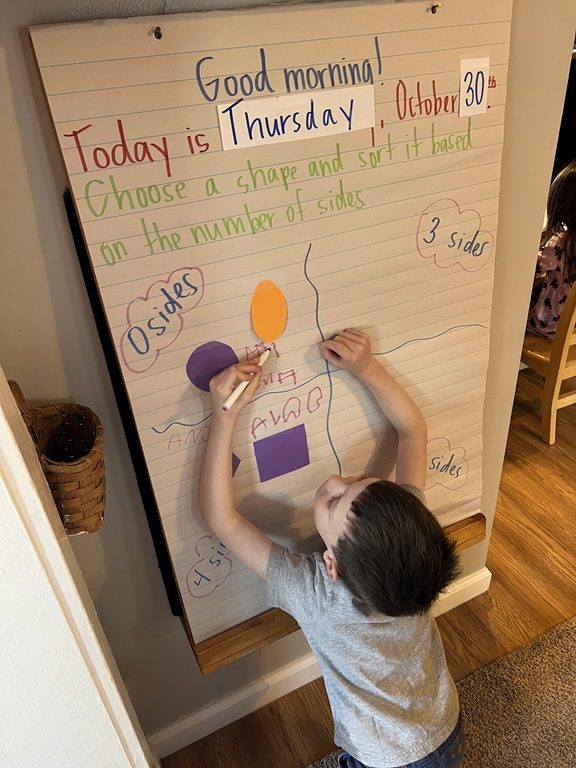 Good morning!
Today is Thursday, October 30th.
Choose a shape and sort it based
on the number of sides
3 sides
0 sides
sides
4 si